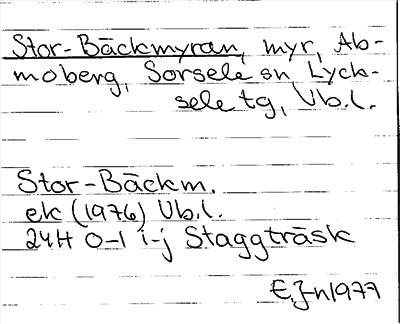 Stor-Bäckmyran, myr, Ab-
moberg, Sorsele sn Lyck-
sele tg, Vb.l.
Stor-Bäckm.
ek (1976) Vb.l.
24H 0-1 i-j Staggträsk
E.J-n 1977